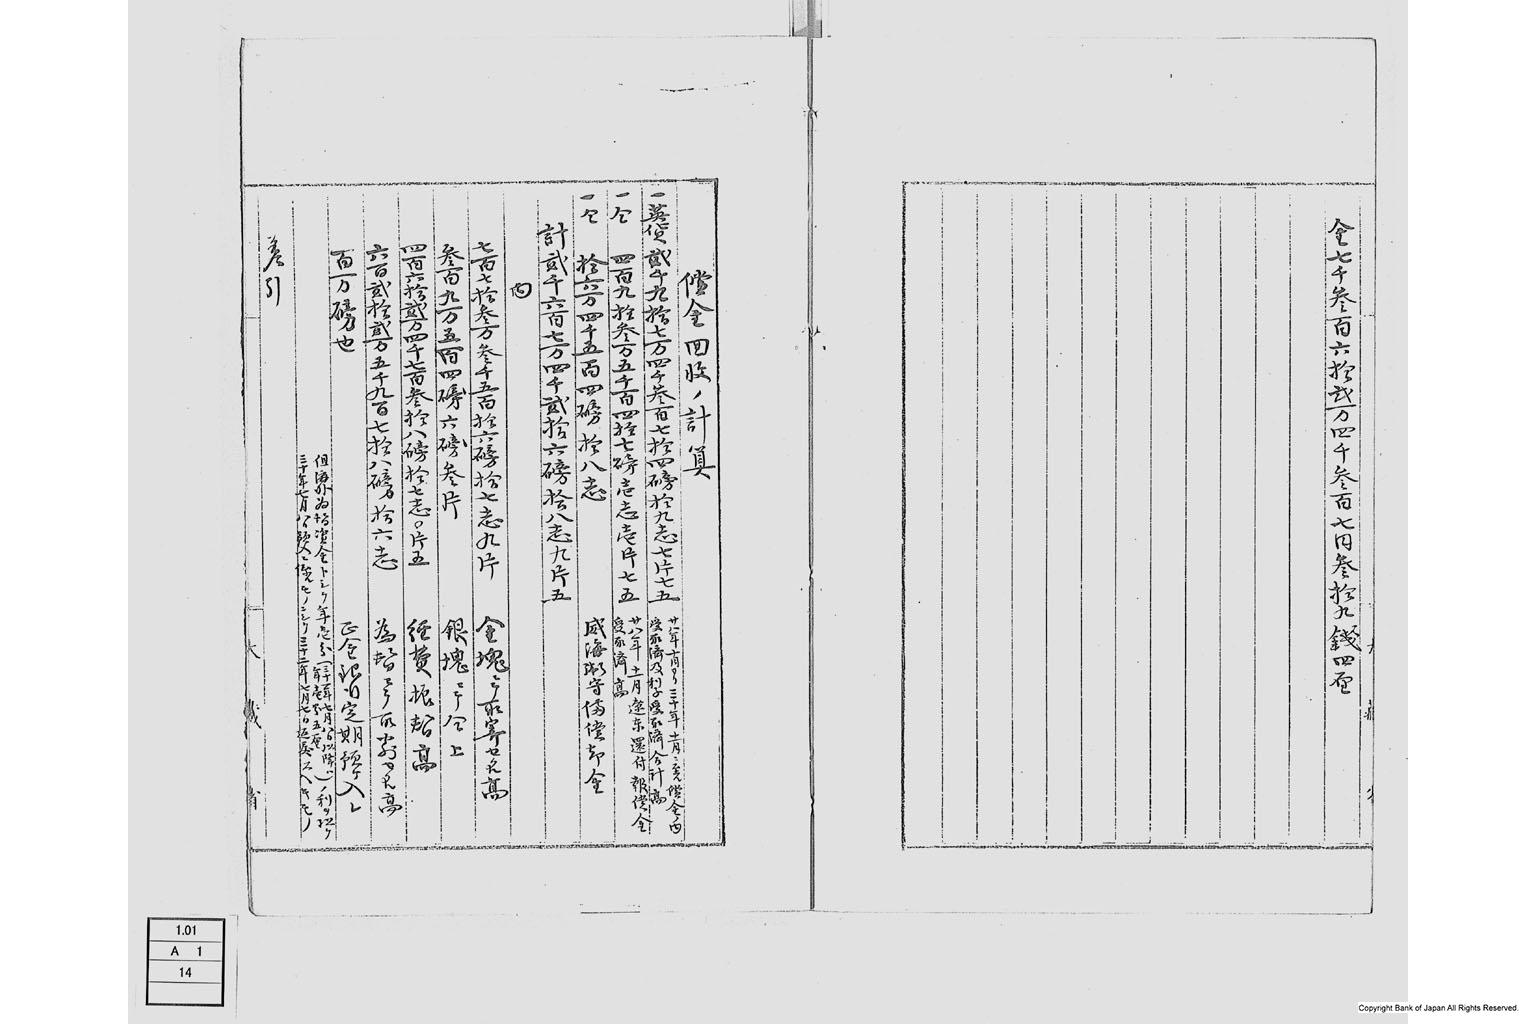 金七千叁百六拾弐万四千叁百七円叁拾九銭四厘
償金回収ノ計算
一英貨弐千九拾七万四千叁百七拾四磅拾九志七片七五
廿八年十月ヨリ三十年十一月ニ至ル償金ノ内
受取済及利子受取済合計高
一仝 四百九拾叁万五千百四拾七磅壱志壱片七五
廿八年十一月遼東還付報償金
受取済高
一仝 拾六万四千五百四磅拾八志 威海衛守備償却金
計弐千六百七万四千弐拾六磅拾八志九片五
内
七百七拾叁万叁千五百拾六磅拾七志九片 金塊ニテ取寄セタル高
叁百九万五百四磅六磅叁片 銀塊ニテ仝上
四百六拾弐万四千七百叁拾八磅拾七志〇片五 経費振替高
六百弐拾弐万五千九百七拾八磅拾六志 為替ニテ取寄セタル高
百万磅也 正金銀行定期預ケ入レ
差引
大蔵省
1.01
A 1
14
Copyright Bank of Japan All Rights Reserved.